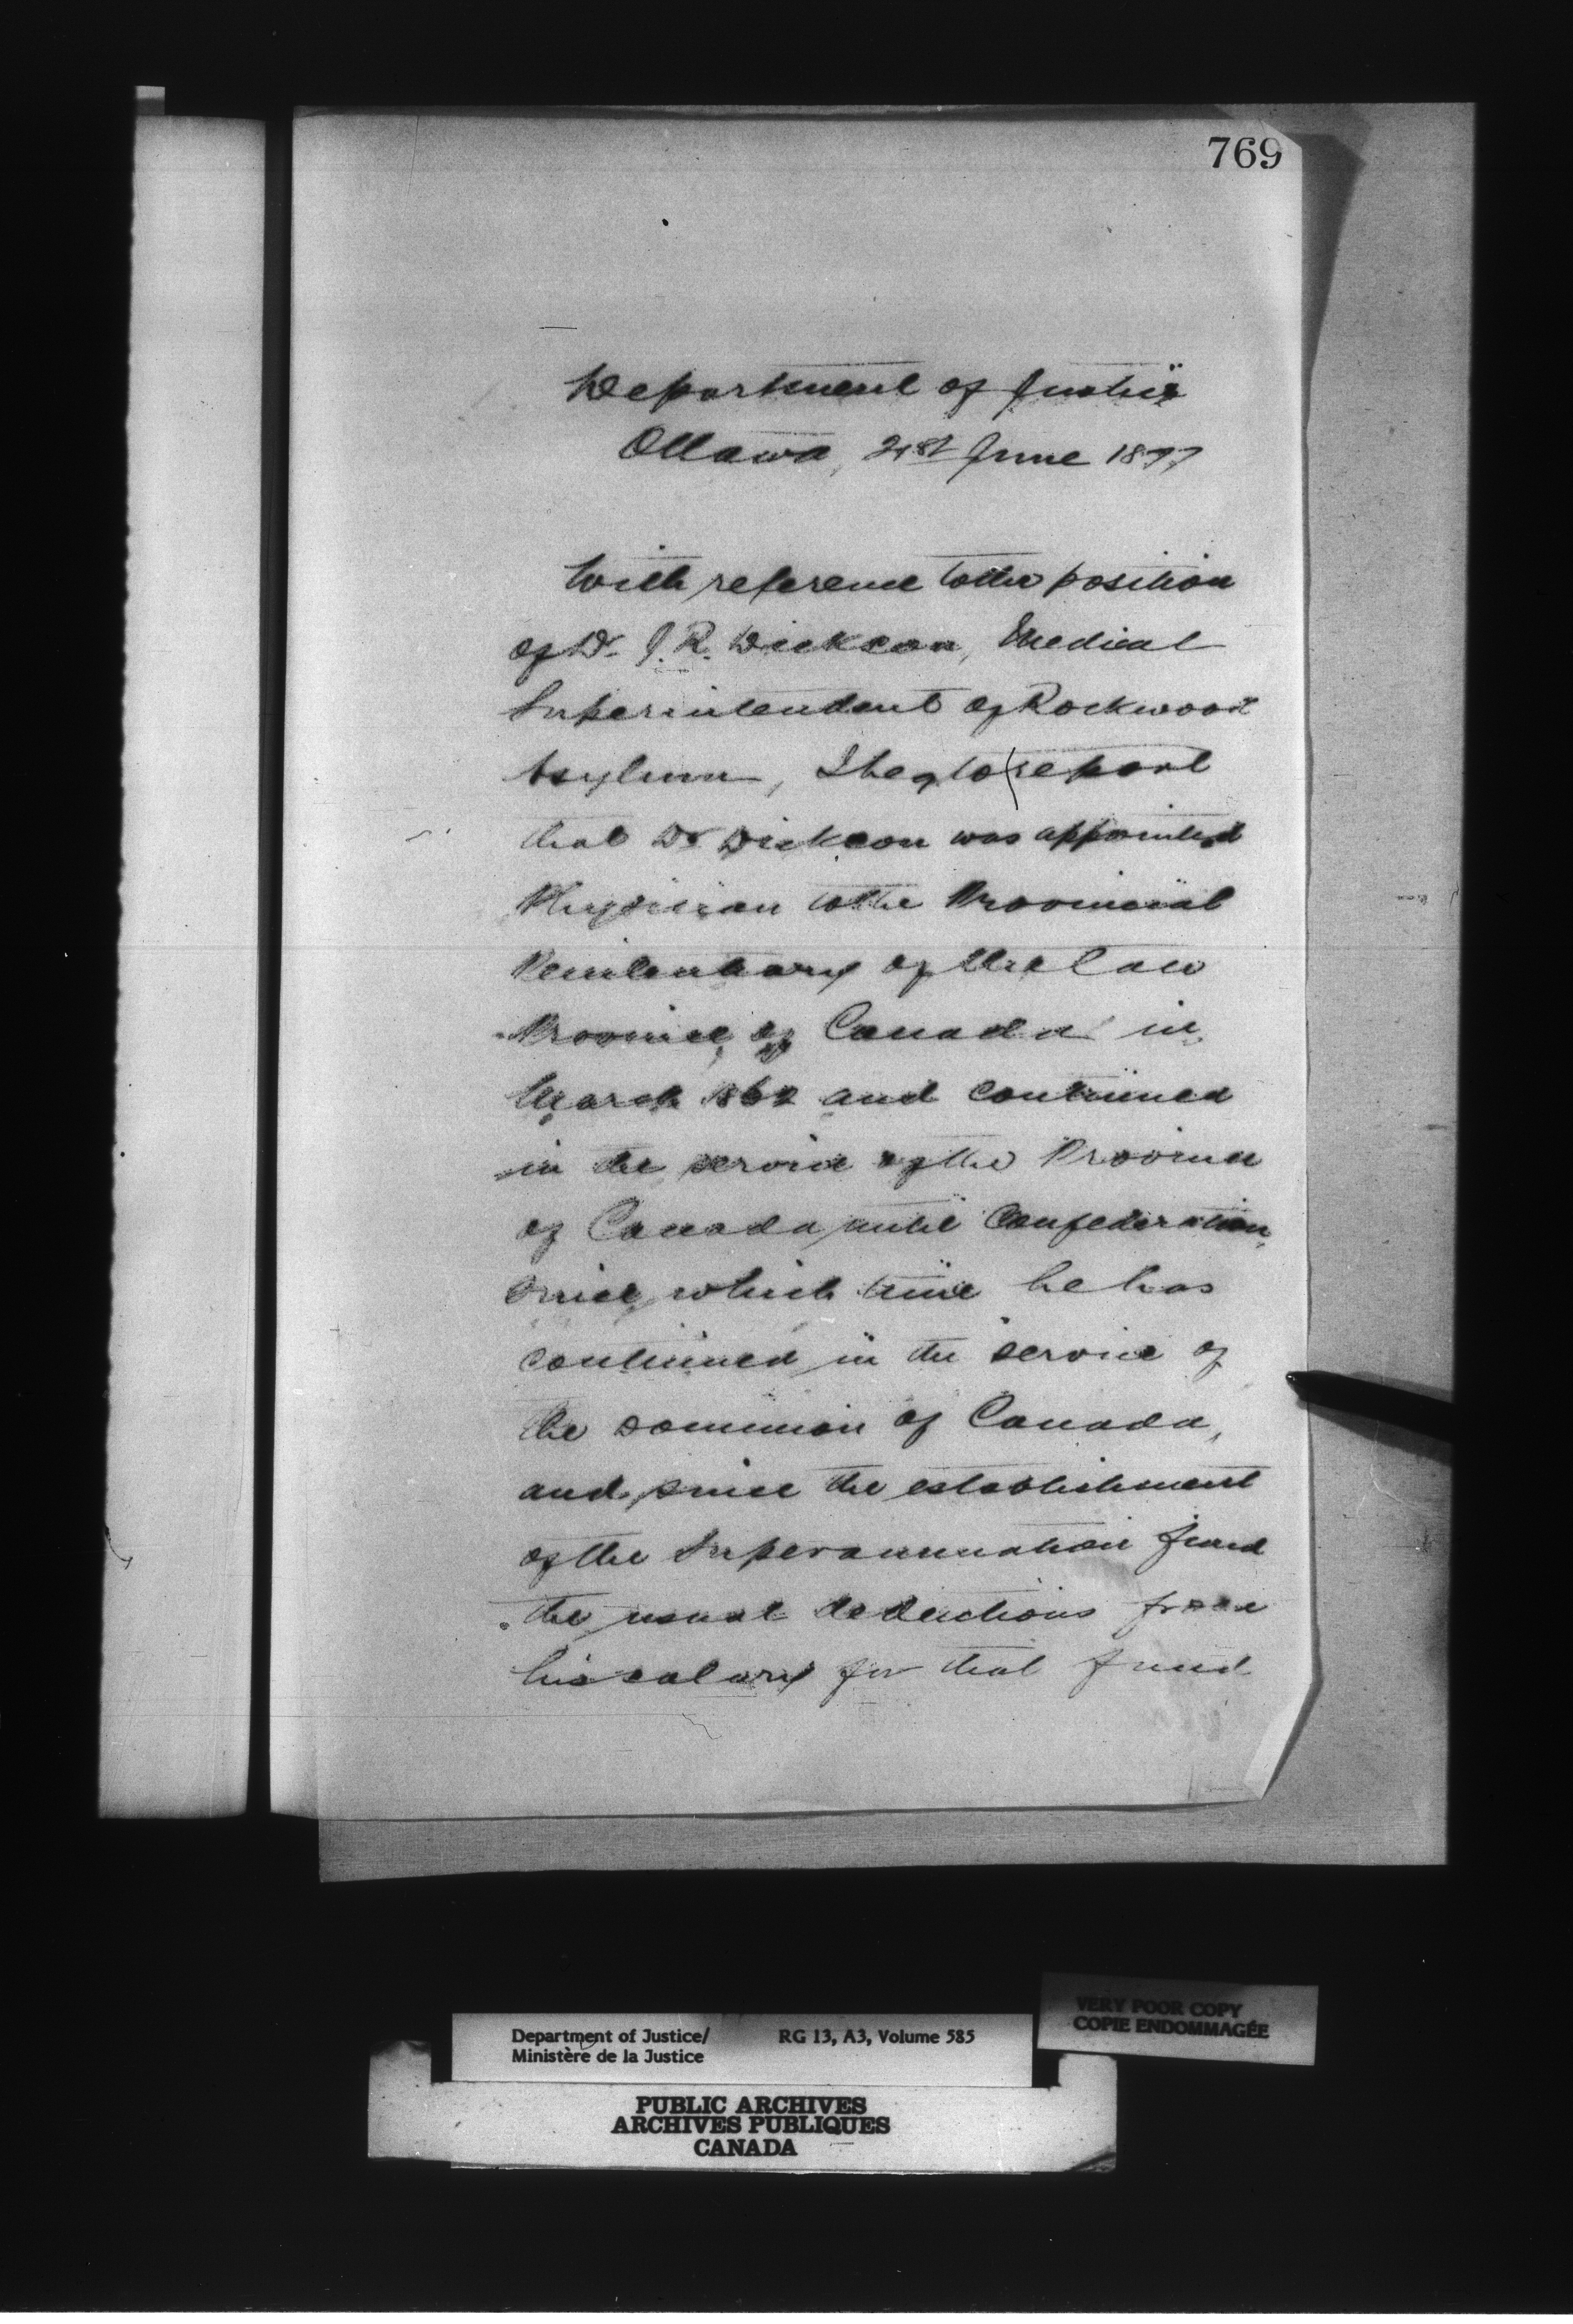 769
Department of Justice
Ottawa, 21st June 1877
With reference to the position
of Dr. J. R. Dickson, Medical
Superintendent of Rockwood
Asylum, I beg to report
that Dr Dickson was appointed
Physician to the Provincial
Penitentiary of the late
Province of Canada in
March 1862 and continued
in the service of the Province
of Canada until Confederation,
since which time he has
continued in the service of
the Dominion of Canada,
and since the establishment
of the Superannuation fund
the usual deductions from
his salary for that fund
Department of Justice/
Ministère de la Justice
RG 13, A3, Volume 585
VERY POOR COPY
COPIE ENDOMMAGÉE
PUBLIC ARCHIVES
ARCHIVES PUBLIQUES
CANADA